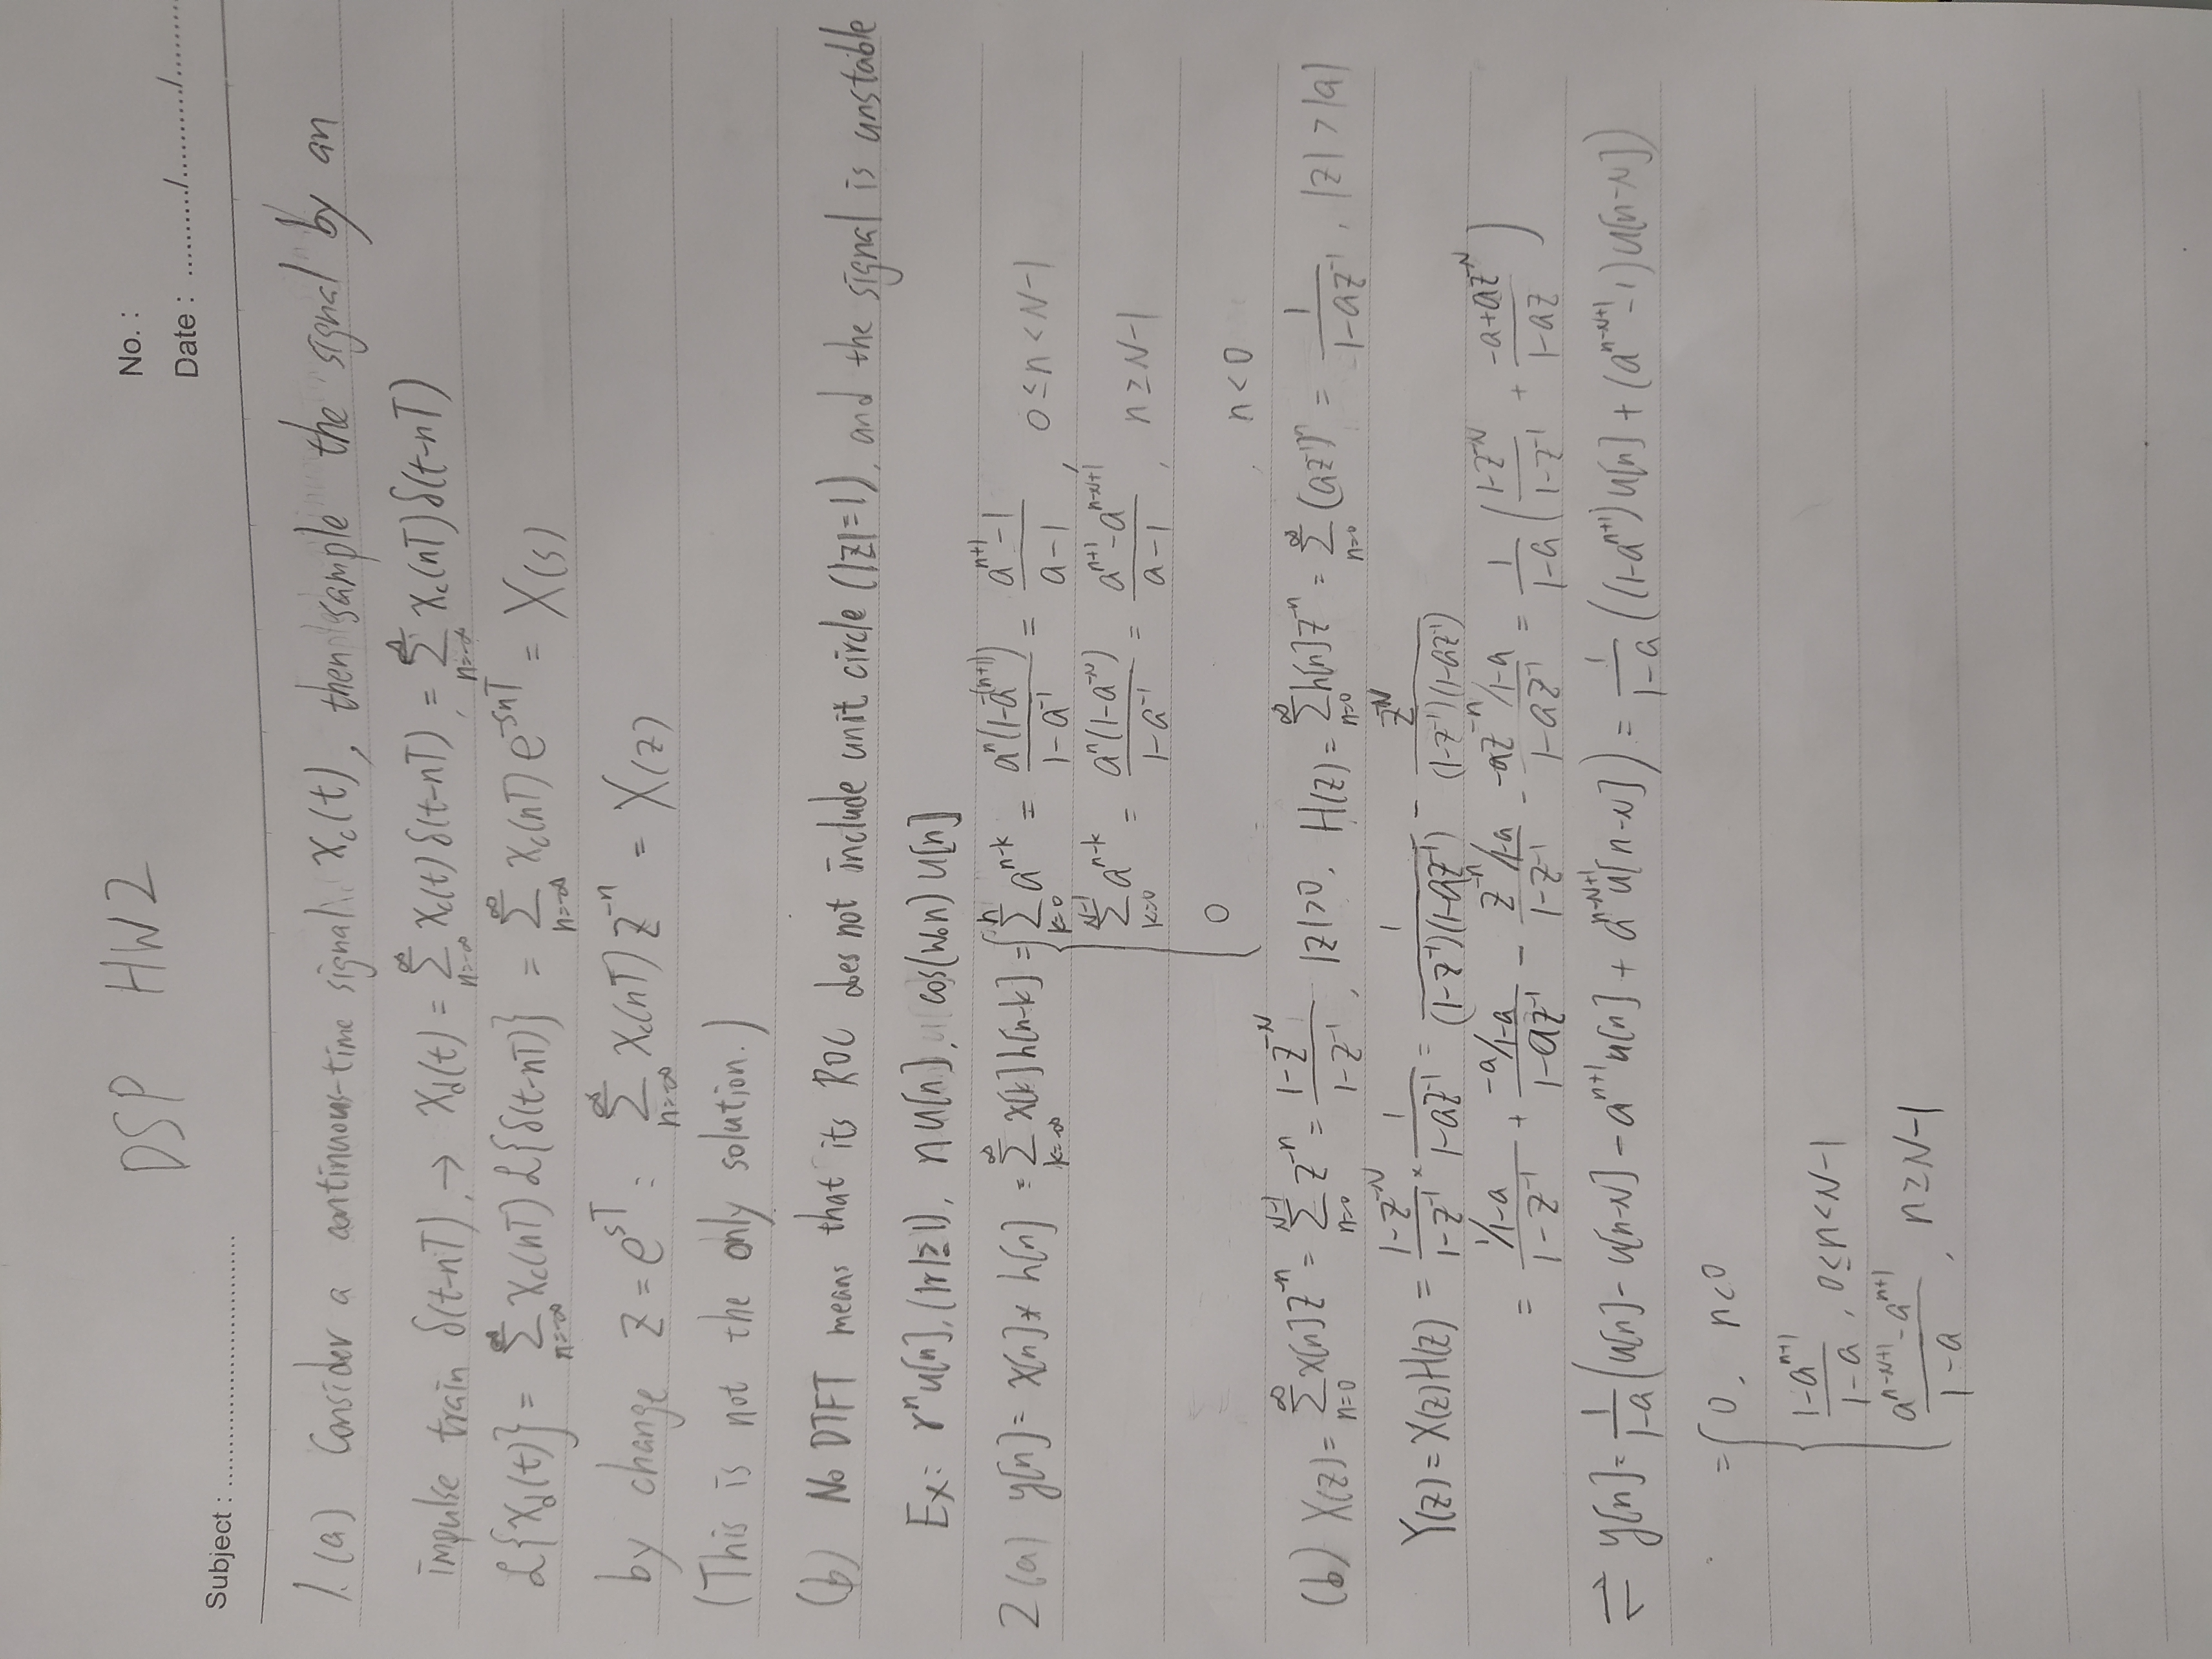 DSP HW2
No. :
Date : ........../........../........
Subject : ................................
1. (a) Consider a continuous-time signal x_c(t), then sample the signal by an
impulse train δ(t-nT), → x_d(t) = Σ_{n=-∞}^{∞} x_c(t) δ(t-nT) = Σ_{n=-∞}^{∞} x_c(nT) δ(t-nT)
ℒ{x_d(t)} = Σ_{n=-∞}^{∞} x_c(nT) ℒ{δ(t-nT)} = Σ_{n=-∞}^{∞} x_c(nT) e^{-snT} = X(s)
by change z = e^{sT} : Σ_{n=-∞}^{∞} x_c(nT) z^{-n} = X(z)
(This is not the only solution.)
(b) No DTFT means that its ROC does not include unit circle (|z|=1), and the signal is unstable
Ex: r^n u[n], (|r|≥1), n u[n], cos(w_0 n) u[n]
2 (a) y[n] = x[n] * h[n] = Σ_{k=-∞}^{∞} x[k] h[n-k] = { Σ_{k=0}^{n} a^{n-k} = a^n(1-a^{-(n+1)}) / (1-a^{-1}) = (a^{n+1}-1) / (a-1), 0 ≤ n < N-1
Σ_{k=0}^{N-1} a^{n-k} = a^n(1-a^{-N}) / (1-a^{-1}) = (a^{n+1}-a^{n-N+1}) / (a-1), n ≥ N-1
0 , n < 0
(b) X(z) = Σ_{n=0}^{∞} x[n] z^{-n} = Σ_{n=0}^{N-1} z^{-n} = (1-z^{-N}) / (1-z^{-1}), |z|>0, H(z) = Σ_{n=0}^{∞} h[n] z^{-n} = Σ_{n=0}^{∞} (az^{-1})^n = 1 / (1-az^{-1}), |z| > |a|
Y(z) = X(z) H(z) = (1-z^{-N}) / (1-z^{-1}) × 1 / (1-az^{-1}) = 1 / (1-z^{-1})(1-az^{-1}) - z^{-N} / (1-z^{-1})(1-az^{-1})
= (1/1-a) / (1-z^{-1}) + (-a/1-a) / (1-az^{-1}) - (z^{-n}/1-a) / (1-z^{-1}) - (-az^{-n}/1-a) / (1-az^{-1}) = 1/(1-a) ( (1-z^{-N}) / (1-z^{-1}) + (-a+az^{-N}) / (1-az) )
⇌ y[n] = 1/(1-a) (u[n] - u[n-N] - a^{n+1} u[n] + a^{n-N+1} u[n-N]) = 1/(1-a) ((1-a^{n+1}) u[n] + (a^{n-N+1} - 1) u[n-N])
= { 0, n<0
(1-a^{n+1}) / (1-a), 0≤n<N-1
(a^{n-N+1} - a^{n+1}) / (1-a), n≥N-1